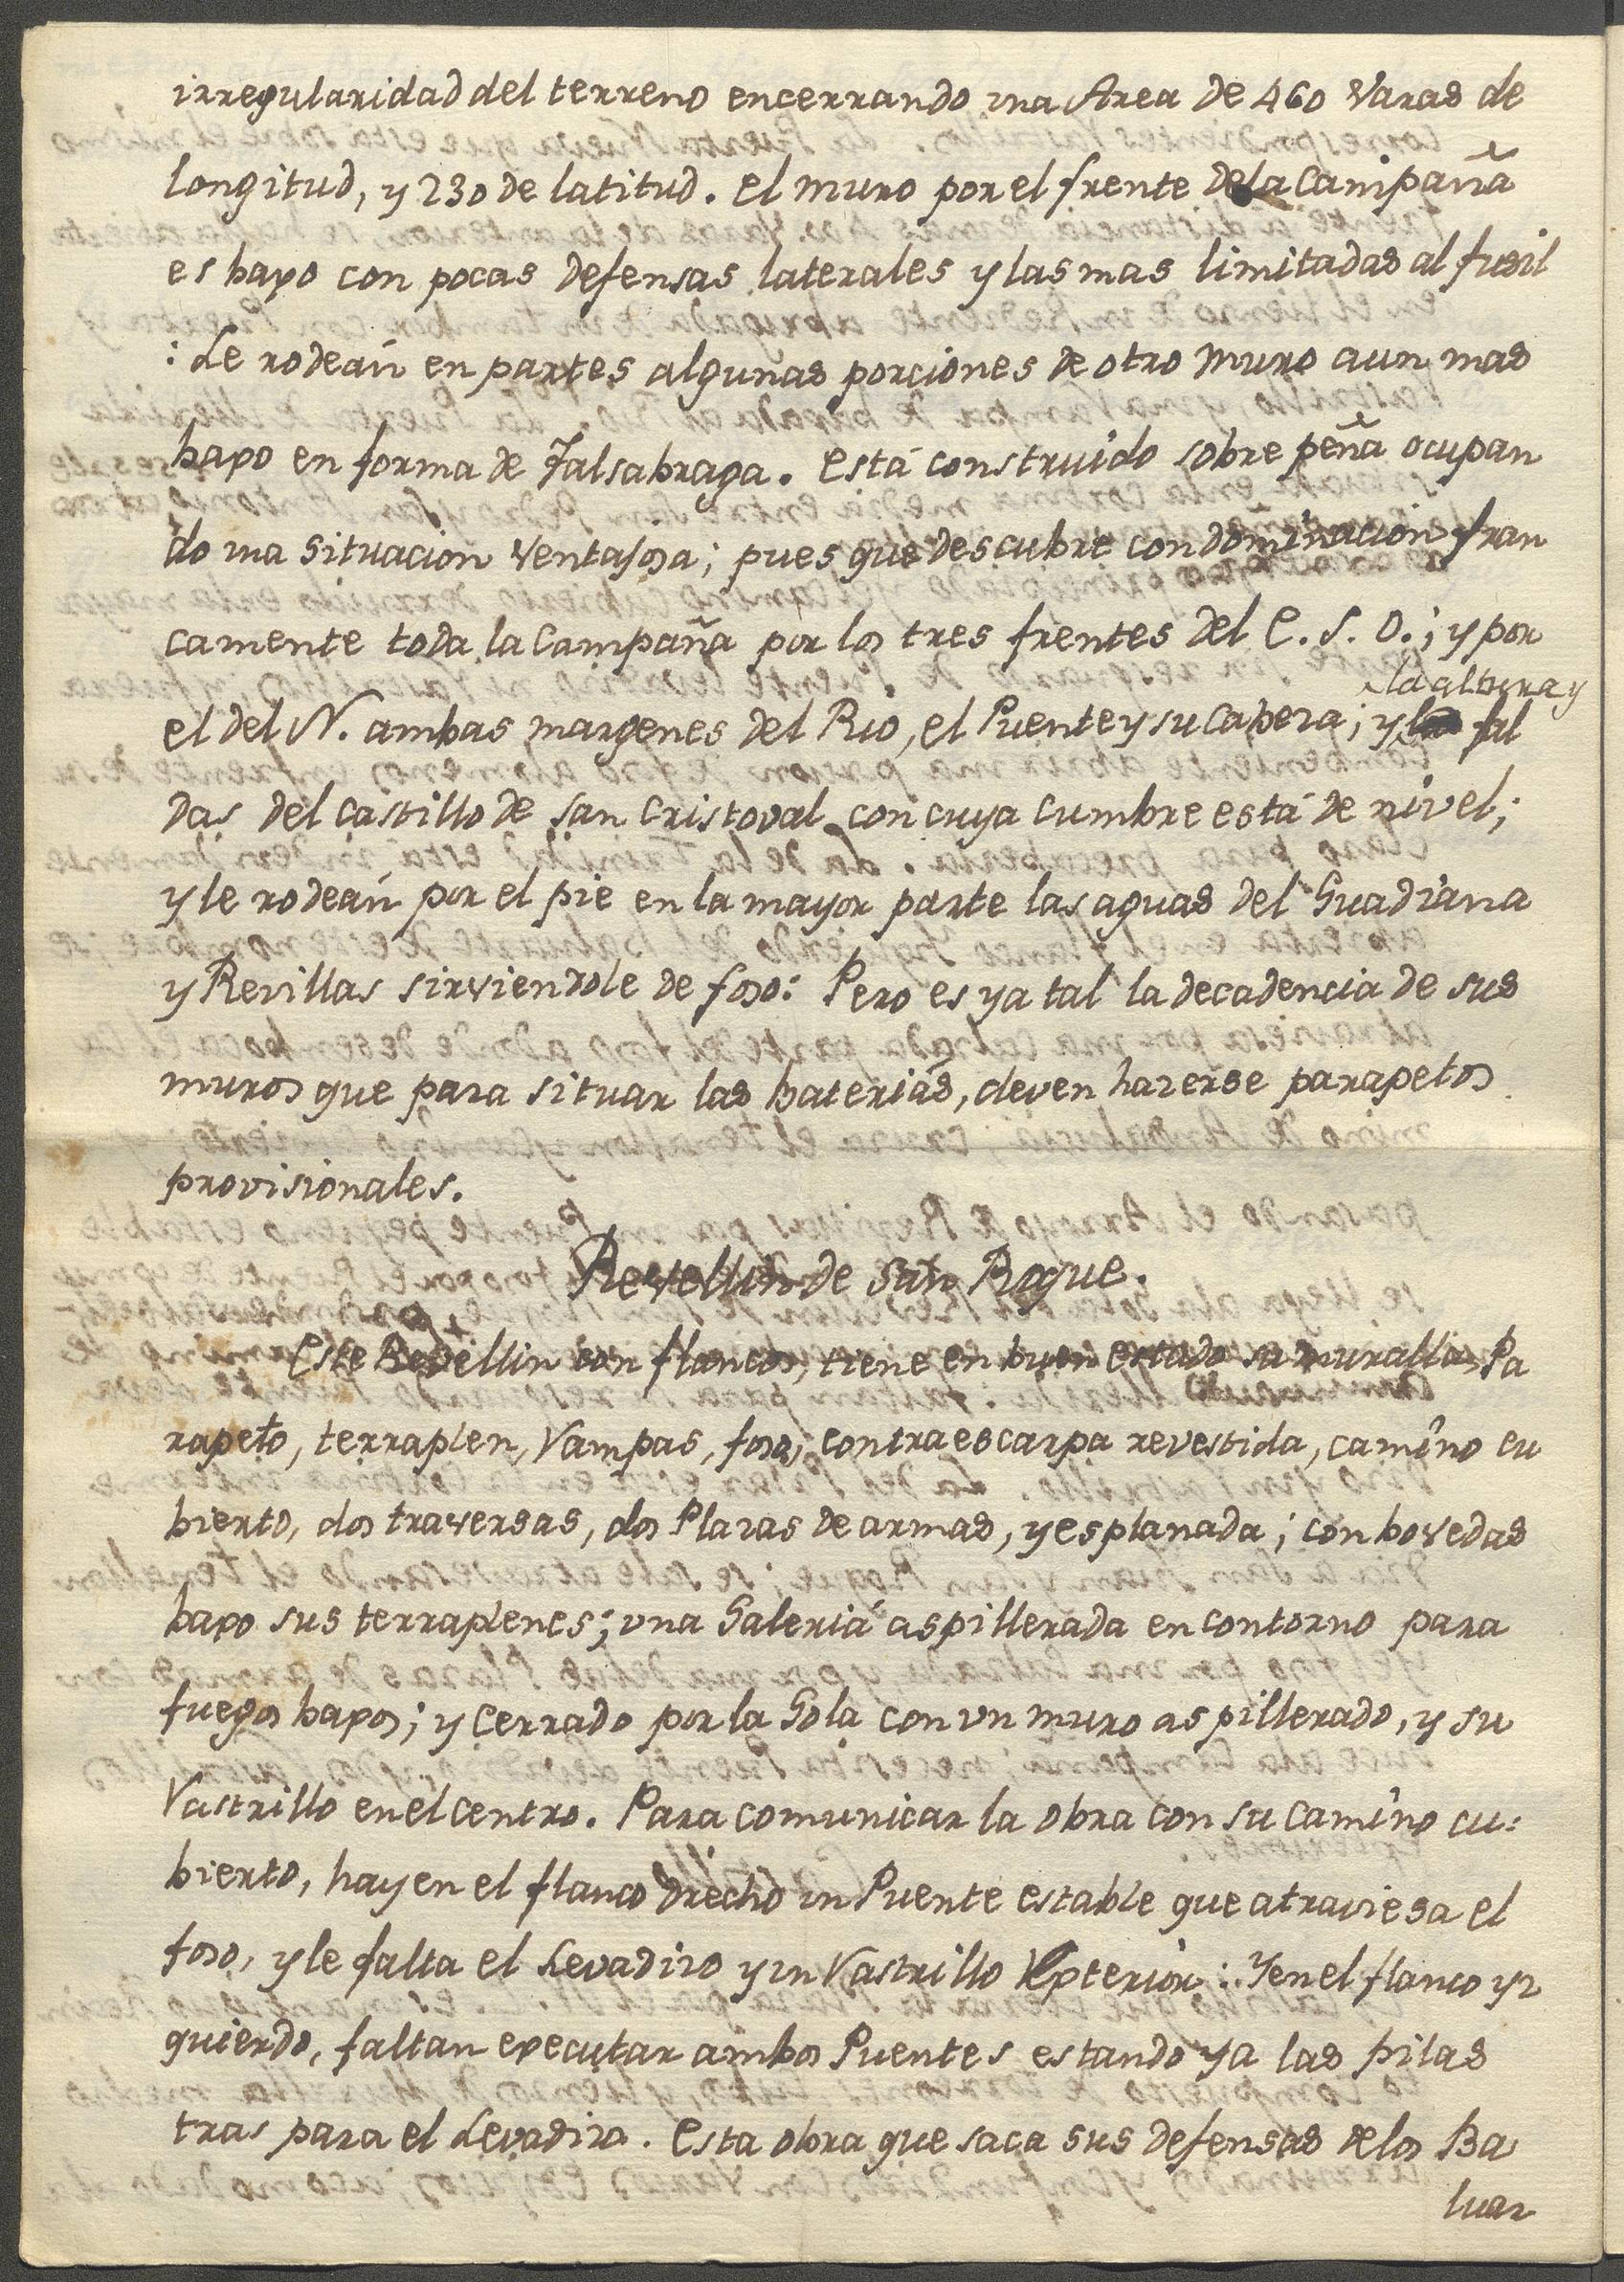 irregularidad del terreno encerrando una Area de 460 Varas de
longitud, y 230 de latitud. El muro por el frente de la Campaña
es baxo con pocas defensas laterales y las mas limitadas al fusil
: Le rodeán en partes algunas porciones de otro muro aun mas
baxo en forma de Falsabraga. Está construido sobre peña ocupan
do una situacion ventajosa; pues que descubre con dominacion fran
camente toda la Campaña por los tres frentes del E. S. O.; y por
la altura y
el del N. ambas margenes del Rio, el Puente y su Cabeza; y fal
das del Castillo de San Cristoval con cuya cumbre está de nivel;
y le rodeán por el pie en la mayor parte las aguas del Guadiana
y Revillas sirviendole de foso: Pero es ya tal la decadencia de sus
muros que para situar las bateriás, deven hazerse parapetos
provisionales.
Revellin de San Roque.
Este Revellin con flancos, tiene en buen estado su muralla, Pa
rapeto, terraplen, Rampas, foso, contraescarpa revestida, camino cu
bierto, dos traversas, dos Plazas de armas, y esplanada; con bovedas
baxo sus terraplenes; una Galeriá aspillerada en contorno para
fuegos baxos; y cerrado por la Gola con un muro aspillerado, y su
Rastrillo en el centro. Para comunicar la obra con su Camino cu:
bierto, hay en el flanco drecho un Puente estable que atraviesa el
foso, y le falta el Levadizo y un Rastrillo Exterior: Y en el flanco yz
quierdo, faltan executar ambos Puentes estando ya las pilas
tras para el Levadizo. Esta obra que saca sus defensas de los Ba
luar